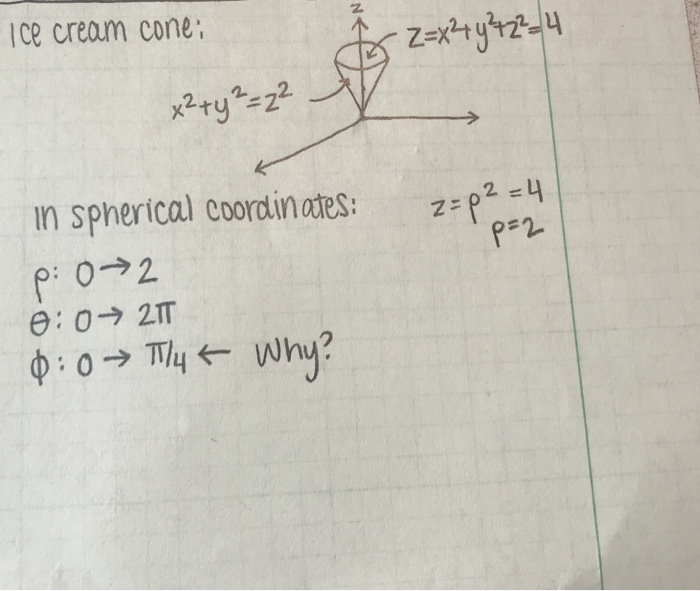 Ice cream cone:
z
z=x²+y²+z²=4
x²+y²=z²
In spherical coordinates:
z=ρ²=4
ρ=2
ρ: 0→2
θ: 0→ 2π
ϕ: 0 → π/4 ← Why?